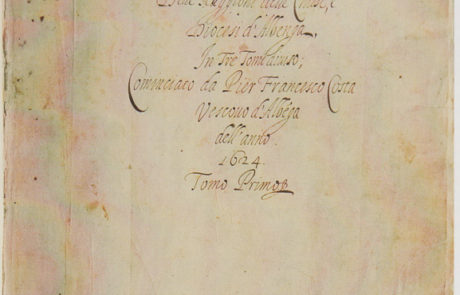 delle Chiese, e
Diocesi d'Albenga,
In Tre Tomi diuiso;
Cominciato da Pier Francesco Costa
Vescouo d'Albẽga
dell'anno
1624
Tomo Primo